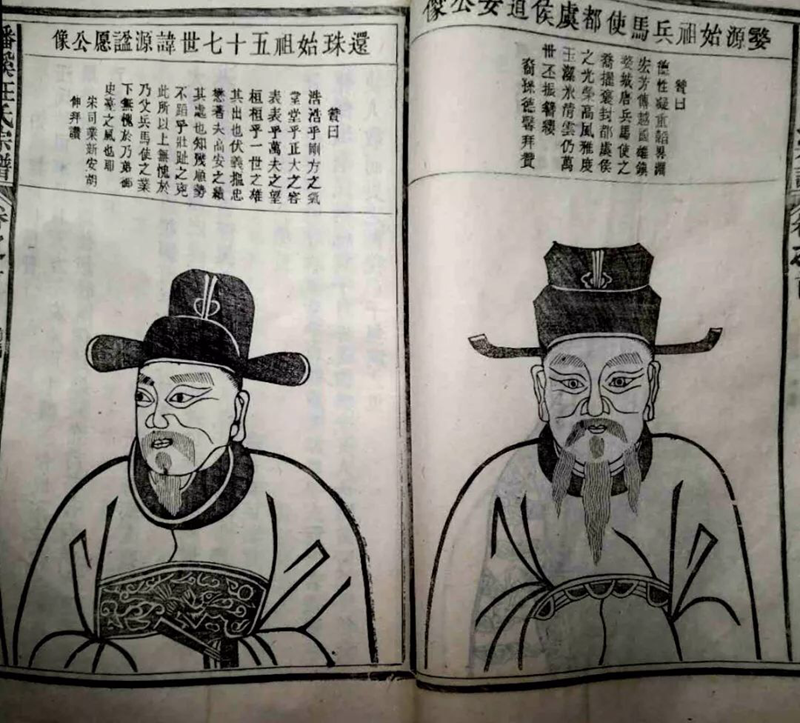 婺源始祖兵馬使都虞侯道安公像
贊曰
德性凝重韜畧淵
宏芳傳越國雄鎮
婺城唐兵馬使之
喬擢褒封都虞侯
之光榮高風雅度
玉潔氷清雲仍萬
世丕振簪纓
裔孫德馨拜贊
還珠始祖五十七世諱源謐愿公像
贊曰
浩浩乎剛方之氣
堂堂乎正大之容
表表乎萬夫之望
桓桓乎一世之雄
其出也伏義攄忠
懋著夫高安之績
其處也知幾順勢
不蹈乎壯趾之凶
此所以上無愧於
乃父兵馬使之業
下無愧於乃弟御
史臺之風也耶
宋司業新安胡
伸拜讚
汪氏宗譜